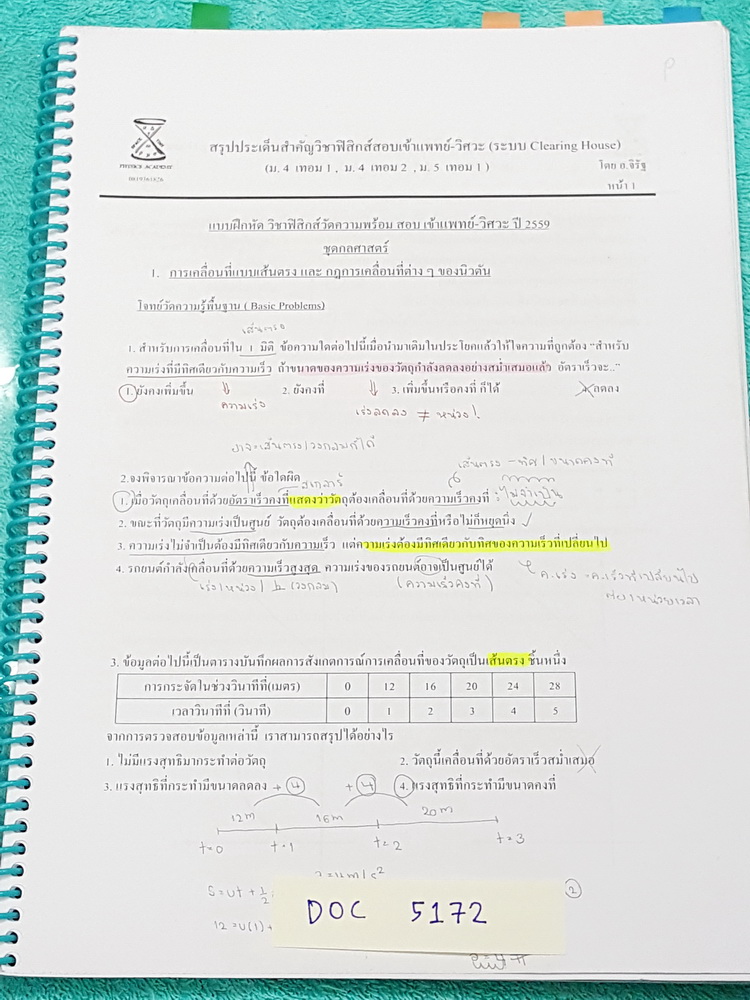 P
PHYSICS ACADEMY
สรุปประเด็นสำคัญวิชาฟิสิกส์สอบเข้าแพทย์-วิศวะ (ระบบ Clearing House)
(ม. 4 เทอม 1 , ม. 4 เทอม 2 , ม. 5 เทอม 1 )
โดย อ.จิรัฐ
หน้า 1
แบบฝึกหัด วิชาฟิสิกส์วัดความพร้อม สอบ เข้าแพทย์-วิศวะ ปี 2559
ชุดกลศาสตร์
1. การเคลื่อนที่แบบเส้นตรง และ กฎการเคลื่อนที่ต่าง ๆ ของนิวตัน
โจทย์วัดความรู้พื้นฐาน ( Basic Problems)
เส้นตรง
1. สำหรับการเคลื่อนที่ใน 1 มิติ ข้อความใดต่อไปนี้เมื่อนำมาเติมในประโยคแล้วให้ใจความที่ถูกต้อง "สำหรับ
ความเร่งที่มีทิศเดียวกับความเร็ว ถ้าขนาดของความเร่งของวัตถุกำลังลดลงอย่างสม่ำเสมอแล้ว อัตราเร็วจะ.."
1. ยังคงเพิ่มขึ้น 2. ยังคงที่ 3. เพิ่มขึ้นหรือคงที่ ก็ได้ 4. ลดลง
ความเร่ง เร่งลดลง ≠ หน่วง!
อาจจะเส้นตรง/วงกลมก็ได้
เส้นตรง - ทิศ/ขนาดคงที่
2.จงพิจารณาข้อความต่อไปนี้ ข้อใดผิด สเกลาร์
1. เมื่อวัตถุเคลื่อนที่ด้วยอัตราเร็วคงที่แสดงว่าวัตถุต้องเคลื่อนที่ด้วยความเร็วคงที่ : ไม่จำเป็น
2. ขณะที่วัตถุมีความเร่งเป็นศูนย์ วัตถุต้องเคลื่อนที่ด้วยความเร็วคงที่หรือไม่ก็หยุดนิ่ง ✓
3. ความเร่งไม่จำเป็นต้องมีทิศเดียวกับความเร็ว แต่ความเร่งต้องมีทิศเดียวกับทิศของความเร็วที่เปลี่ยนไป
4. รถยนต์กำลังเคลื่อนที่ด้วยความเร็วสูงสุด ความเร่งของรถยนต์อาจเป็นศูนย์ได้
เร่ง/หน่วง/⊥ (วงกลม) (ความเร็วคงที่)
ค.เร่ง = ค.เร็วที่เปลี่ยนไป
ต่อ 1 หน่วยเวลา
3. ข้อมูลต่อไปนี้เป็นตารางบันทึกผลการสังเกตการณ์การเคลื่อนที่ของวัตถุเป็นเส้นตรง ชิ้นหนึ่ง
การกระจัดในช่วงวินาทีที่(เมตร) 0 12 16 20 24 28
เวลาวินาทีที่ (วินาที) 0 1 2 3 4 5
จากการตรวจสอบข้อมูลเหล่านี้ เราสามารถสรุปได้อย่างไร
1. ไม่มีแรงสุทธิมากระทำต่อวัตถุ 2. วัตถุนี้เคลื่อนที่ด้วยอัตราเร็วสม่ำเสมอ
3. แรงสุทธิที่กระทำมีขนาดลดลง 4. แรงสุทธิที่กระทำมีขนาดคงที่
+4 +4
12m 16m 20m
t=0 t=1 t=2 t=3
S = ut + 1/2
12 = u(1) +
2
DOC 5172